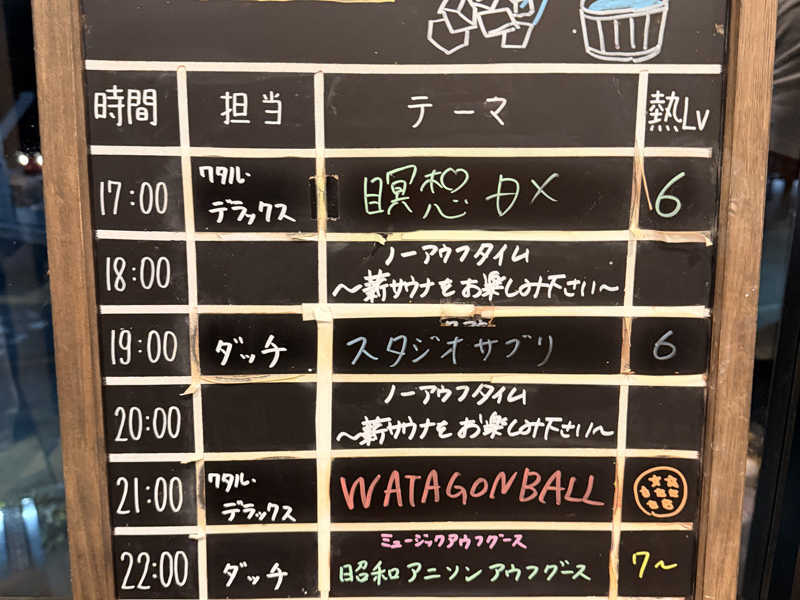 時間 担当 テーマ 熱Lv
17:00 ワタル・デラックス 瞑想 DX 6
18:00 ノーアウフタイム
～薪サウナをお楽しみ下さい～
19:00 ダッチ スタジオサブリ 6
20:00 ノーアウフタイム
～薪サウナをお楽しみ下さい～
21:00 ワタル・デラックス WATAGONBALL
22:00 ダッチ ミュージックアウフグース
昭和アニソンアウフグース 7～